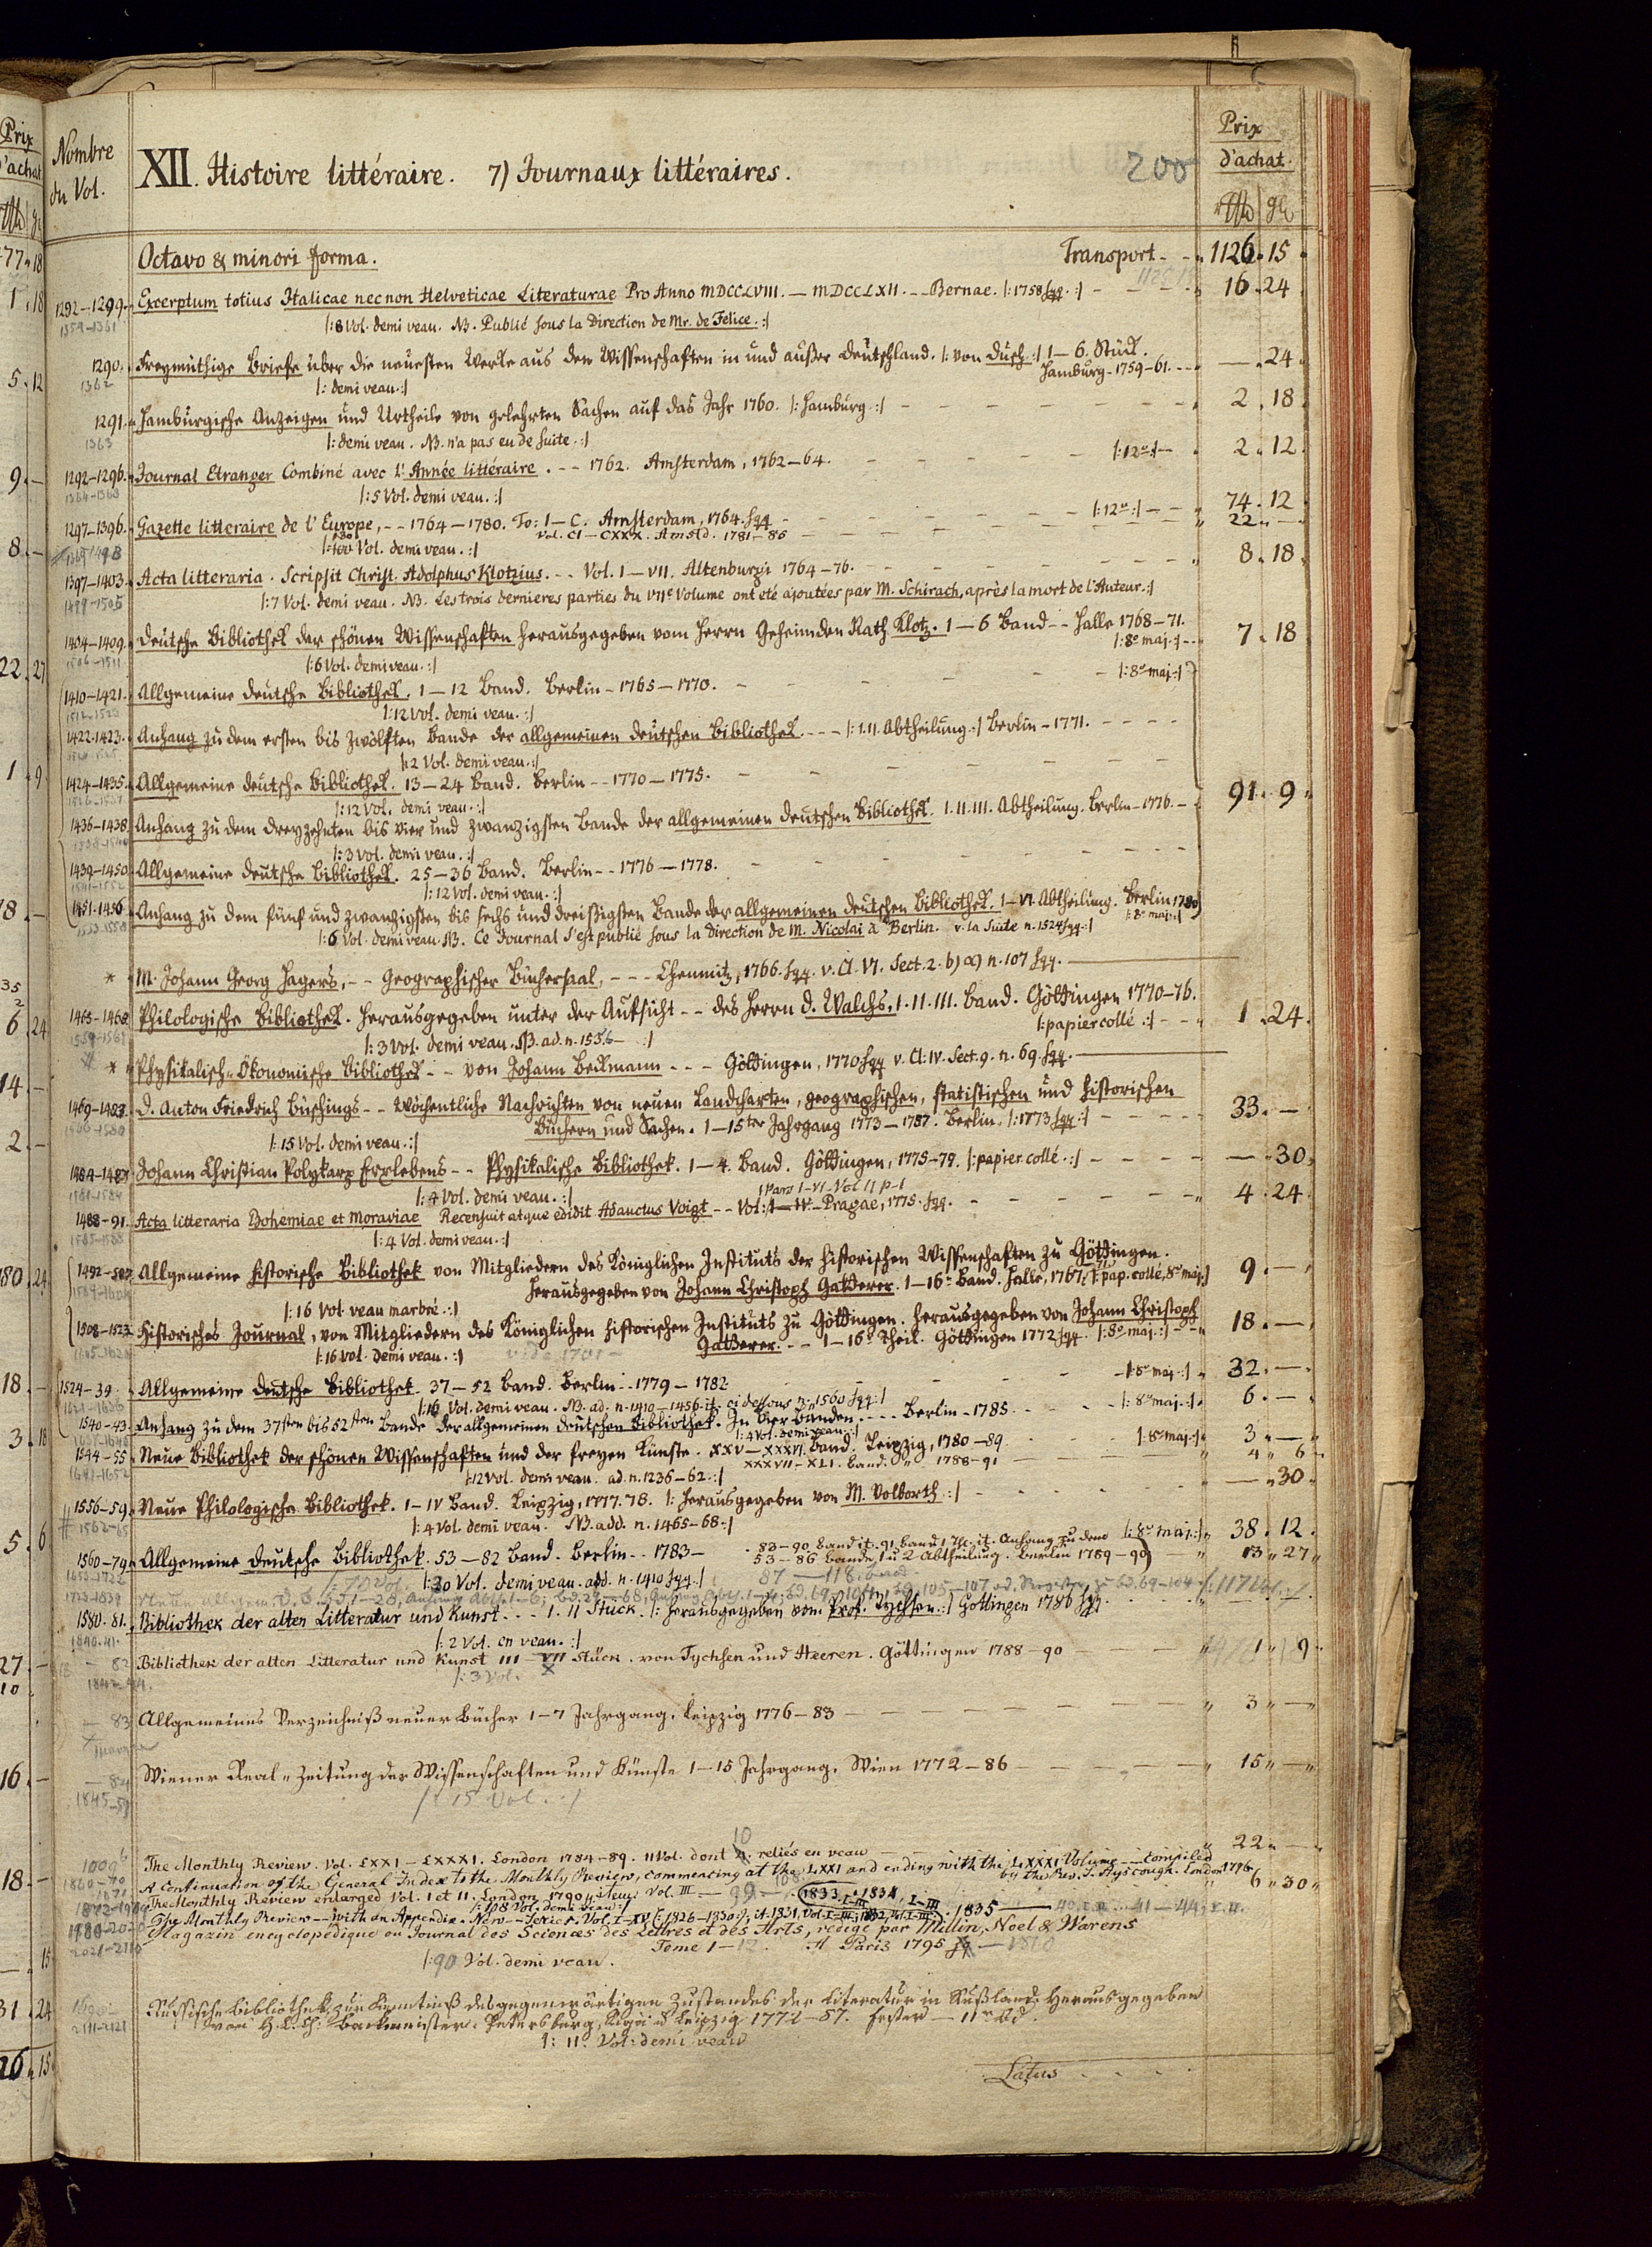 Nombre du Vol.
XII. Histoire littéraire. 7) Journaux littéraires. 200
Prix d'achat.
Octavo & minori forma. Transport - - 1126. 15
1292-1299. Excerptum totius Italicae necnon Helveticae Literaturae Pro Anno MDCCLVIII. — MDCCLXII. -- Bernae. |: 1758 sqq. :| 16. 24
1359-1361 |: 8 Vol. demi veau. NB. Publié sous la Direction de Mr. de Felice. :|
1290. Freymüthige Briefe über die neuesten Werke aus den Wissenschaften in und außer Deutschland. |: von Dusch :| 1—6. Stück.
1362 |: demi veau. :| Hamburg - 1759-61. --- —. 24
1291. Hamburgische Anzeigen und Urtheile von gelehrten Sachen auf das Jahr 1760. |: Hamburg :| 2. 18
1363 |: demi veau. NB. n'a pas eu de suite. :|
1292-1296. Journal Etranger Combiné avec l'Année littéraire. -- 1762. Amsterdam, 1762-64. |: 12º :| 2. 12
1364-1368 |: 5 Vol. demi veau. :|
1297-1396. Gazette litteraire de l'Europe, -- 1764-1780. To: I—C. Amsterdam, 1764. sqq - |: 12º :| 74. 12
Vol. CI—CXXX. Amstd. 1781-86 22. —
1369-1498 |: 130 Vol. demi veau. :|
1397-1403. Acta litteraria. Scripsit Christ. Adolphus Klotzius. -- Vol. I—VII. Altenburgi 1764-76. 8. 18
1499-1505 |: 7 Vol. demi veau. NB. Les trois dernieres parties du VIIe Volume ont été ajoutées par M. Schirach, après la mort de l'Auteur. :|
1404-1409. Deutsche Bibliothek der schönen Wissenschaften herausgegeben vom Herrn Geheimden Rath Klotz. 1—6 Band -- Halle 1768-71.
1506-1511 |: 6 Vol. demi veau. :| |: 8º maj. :| 7. 18
1410-1421. Allgemeine deutsche Bibliothek. 1—12 Band. Berlin - 1765-1770. - |: 8º maj. :|
1512-1523 |: 12 Vol. demi veau. :|
1422-1423. Anhang zu dem ersten bis zwölften Bande der allgemeinen deutschen Bibliothek. --- |: I. II. Abtheilung. :| Berlin - 1771.
|: 2 Vol. demi veau. :|
1424-1435. Allgemeine deutsche Bibliothek. 13—24 Band. Berlin -- 1770-1775.
|: 12 Vol. demi veau. :|
1436-1438. Anhang zu dem dreyzehnten bis vier und zwanzigsten Bande der allgemeinen deutschen Bibliothek. I. II. III. Abtheilung. Berlin - 1776. - 91. 9
|: 3 Vol. demi veau. :|
1439-1450. Allgemeine deutsche Bibliothek. 25—36 Band. Berlin -- 1776-1778.
|: 12 Vol. demi veau. :|
1451-1456. Anhang zu dem fünf und zwanzigsten bis sechs und dreißigsten Bande der allgemeinen deutschen Bibliothek. I—VI. Abtheilung. Berlin 1780
|: 6 Vol. demi veau. NB. Ce Journal s'est publié sous la direction de M. Nicolai à Berlin. v. la Suite n. 1524 sqq. :| |: 8º maj. :|
* M. Johann Georg Hagers, -- Geographischer Büchersaal, --- Chemnitz, 1766. sqq. v. Cl. VI. Sect. 2. b) α) n. 107 sqq.
1465-1468. Philologische Bibliothek. Herausgegeben unter der Aufsicht -- des Herrn D. Walchs. I. II. III. Band. Göttingen 1770-76.
|: 3 Vol. demi veau. NB. ad. n. 1556— :| |: papier collé :| - - 1. 24
* Physikalisch-Ökonomische Bibliothek -- von Johann Beckmann --- Göttingen, 1770 sqq v. Cl: IV. Sect. 9. n. 69. sqq.
1469-1483. D. Anton Friedrich Büschings -- Wöchentliche Nachrichten von neuen Landcharten, geographischen, statistischen und historischen
Büchern und Sachen. 1—15ter Jahrgang 1773-1787. Berlin. |: 1773 sqq. :| 33. —
|: 15 Vol. demi veau. :|
1484-1487. Johann Christian Polykarp Erxlebens -- Physikalische Bibliothek. 1—4. Band. Göttingen, 1775-79. |: papier collé. :| —. 30
1581-1584 |: 4 Vol. demi veau. :|
1488-91. Acta litteraria Bohemiae et Moraviae Recensuit atque edidit Adauctus Voigt -- Vol: Pragae, 1775. sqq. 4. 24
1585-1588 |: 4 Vol. demi veau. :|
1492-507. Allgemeine historische Bibliothek von Mitgliedern des Königlichen Instituts der historischen Wissenschaften zu Göttingen.
Herausgegeben von Johann Christoph Gatterer. 1—16. Band. Halle, 1767. |: pap. collé, 8º maj. :| 9. —
|: 16 Vol. veau marbré. :|
1508-1523. Historisches Journal, von Mitgliedern des Königlichen historischen Instituts zu Göttingen. herausgegeben von Johann Christoph
|: 16 Vol. demi veau. :| Gatterer. -- 1—16. Theil. Göttingen 1772 sqq. |: 8º maj. :| 18. —
1524-39. Allgemeine deutsche Bibliothek. 37—52 Band. Berlin -- 1779-1782 |: 8º maj. :| 32. —
|: 16 Vol. demi veau. NB. ad. n. 1410-1456. it. ci dessous n. 1560 sqq. :|
1540-43. Anhang zu dem 37sten bis 52sten Bande der allgemeinen deutschen Bibliothek. In vier Banden. ---- Berlin - 1785. |: 8º maj. :| 6. —
|: 4 Vol. demi veau. :|
1544-55. Neue Bibliothek der schönen Wissenschaften und der freyen Künste. XXV—XXXVI. Band. Leipzig, 1780-89. |: 8º maj. :| 3. —
XXXVII—XLI. Band. " 1788-91 4. 6
1641-1652 |: 12 Vol. demi veau. ad. n. 1236-62. :|
1556-59. Neue Philologische Bibliothek. I—IV Band. Leipzig, 1777. 78. |: herausgegeben von M. Volborth. :| —. 30
|: 4 Vol. demi veau. NB. add. n. 1465-68. :|
1560-79. Allgemeine deutsche Bibliothek. 53—82 Band. Berlin -- 1783- |: 8º maj. :| 38. 12
83—90 Band it. 91 Band 1 St. it. Anhang zu dem
53—86 Bande, 1 u 2 Abtheilung. Berlin 1789-90 13. 27
|: 30 Vol. demi veau. add. n. 1410 sqq. :| 87—118. Band.
1580-81. Bibliothek der alten Litteratur und Kunst --- I. II Stück. |: herausgegeben vom Prof. Tychsen. :| Göttingen 1786 sqq.
1840.41. |: 2 Vol. en veau. :|
— 82 Bibliothek der alten Litteratur und Kunst III—VII Stück. von Tychsen und Heeren. Göttingen 1788-90 1. 9
|: 3 Vol.
— 83 Allgemeines Verzeichniß neuer Bücher 1—7 Jahrgang. Leipzig 1776-83 3. —
— 84 Wiener Real-Zeitung der Wissenschaften und Künste 1—15 Jahrgang. Wien 1772-86 15. —
|: 15 Vol. :|
The Monthly Review. Vol. LXXI—LXXXI. London 1784-89. 11 Vol. dont 10 reliés en veau 22. —
A Continuation of the General Index to the Monthly Review, commencing at the LXXI and ending with the LXXXI Volume -- Compiled
by the Rev. S. Ayscough. London 1796. 6. 30
The Monthly Review enlarged Vol. I et II. London 1790 Vol. III
|: 108 Vol. demi veau :|
The Monthly Review -- with an Appendix. New -- Series. Vol. I—XV |: 1826-1830 :|; it. 1831, Vol. I-III; 1832, Vol. I-III. 1833, I-III. 1834, I-III. 1835
Magazin encyclopédique ou Journal des Sciences des Lettres et des Arts, redigé par Millin, Noel & Warens
Tome 1— A Paris 1795 — 1810
|: 90 Vol. demi veau.
Russische Bibliothek, zur Kenntniß des gegenwärtigen Zustandes der Literatur in Rußland. Herausgegeben
von H. L. Ch. Backmeister. Petersburg, Riga u Leipzig 1772-87. Erster — 11r Bd.
|: 11. Vol: demi veau
Latus